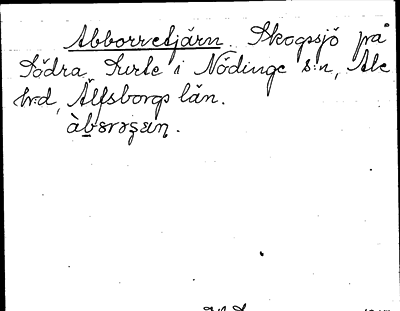 Abborretjärn. Skogssjö på
Södra Surte i Nödinge s:n, Ale
hrd, Älfsborgs län.